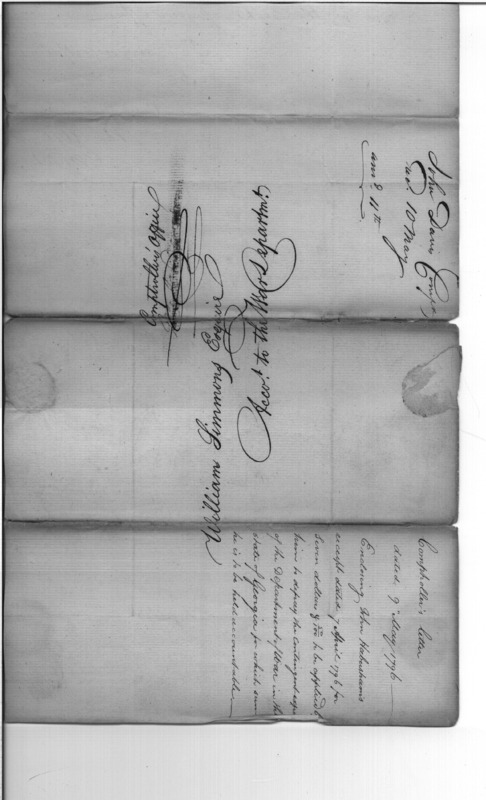 John Davis Compr
recd. 10 May
ansd. 11th
Comptrollers Office
William Simmons Esquire
Accot. to the War Department
Comptroller's letter
dated, 9 May 1796
Enclosing John Habersham's
receipt dated, 7 April 1796 for
seven dollars & to be applied by
him to defray the contingent exps
of the Department of War in the
state of Georgia for which sum
he is to be held accountable